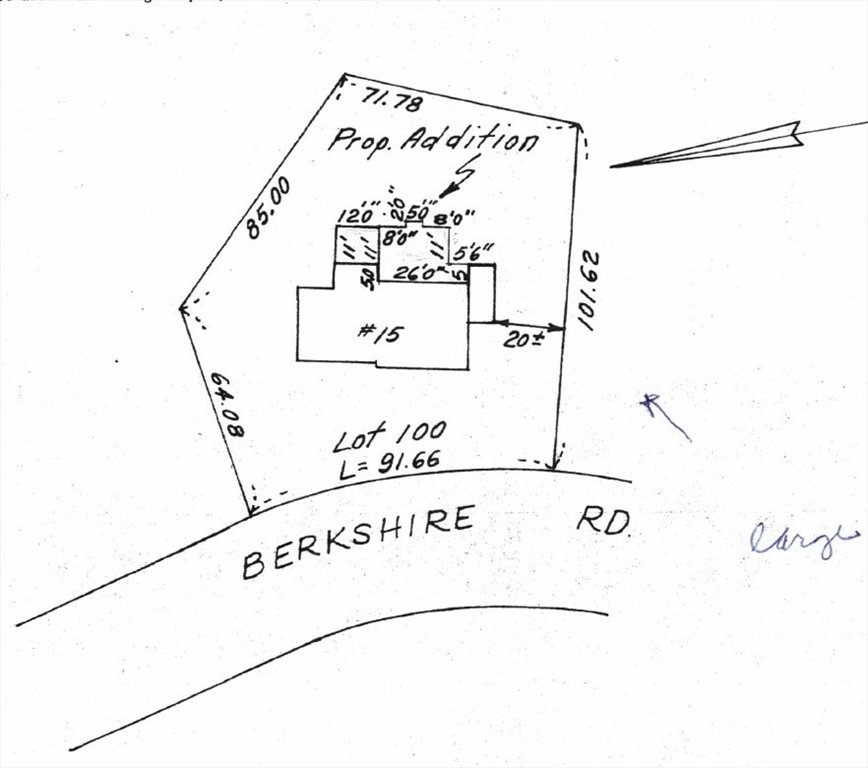 71.78
Prop. Addition
85.00
12'0" 2'0" 5'0" 8'0"
8'0"
11' 11' 11'
5'6"
5'0 26'0" 5'
101.62
#15
20±
64.08
Lot 100
L= 91.66
BERKSHIRE RD.
large